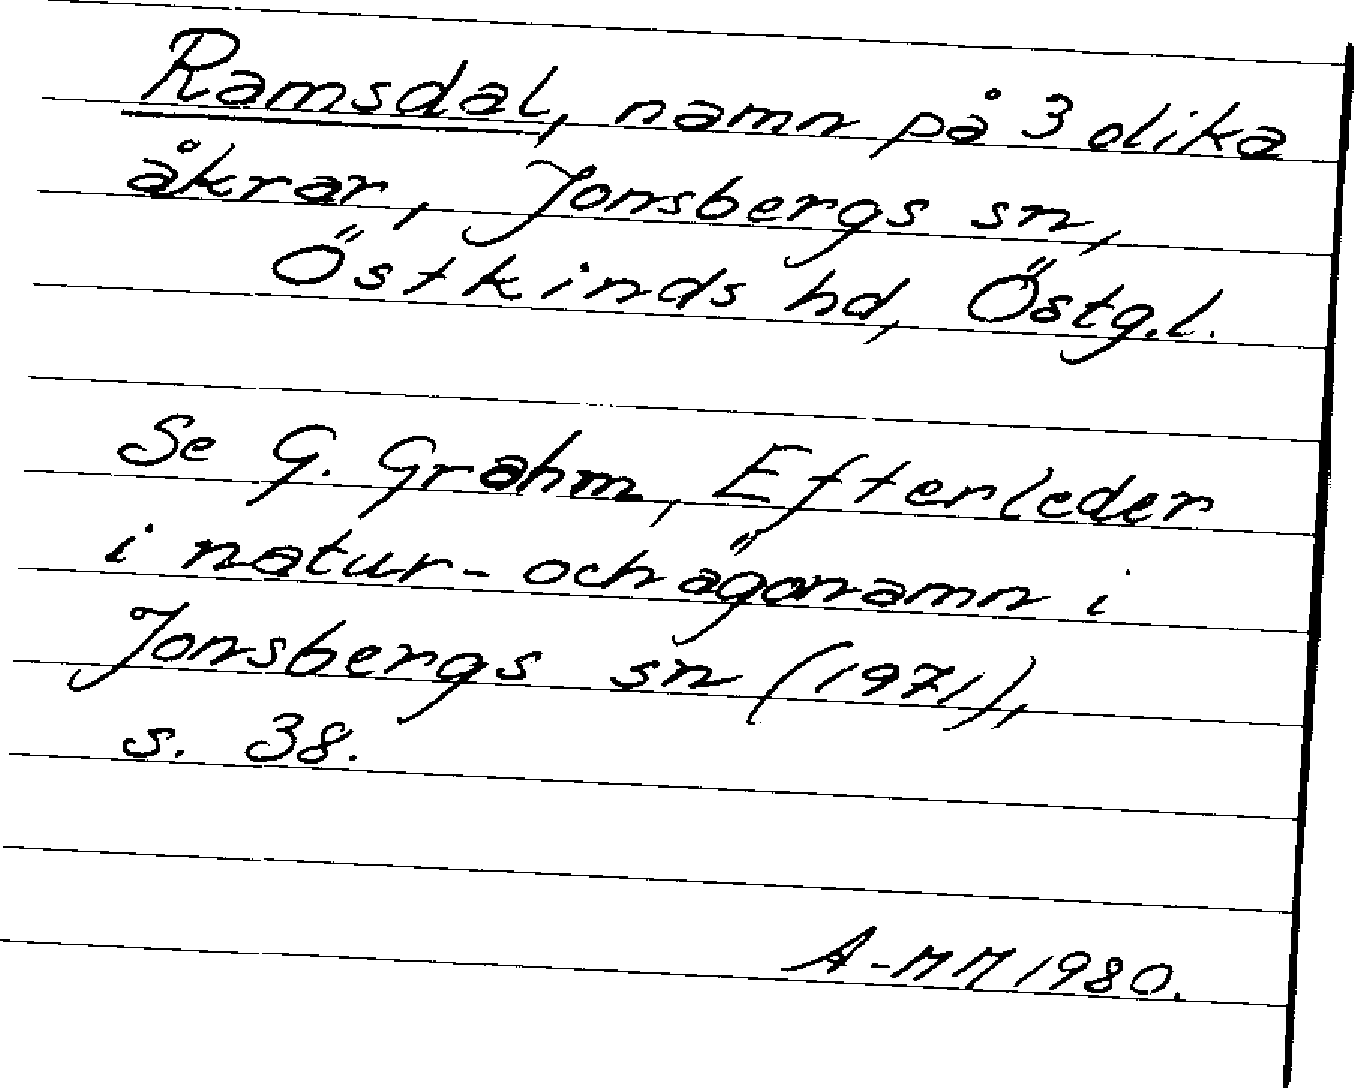 Ramsdal, namn på 3 olika
åkrar, Jonsbergs sn,
Östkinds hd, Östg.l.
Se G. Grahm, Efterleder
i natur- och ägonamn i
Jonsbergs sn (1971),
s. 38.
A-MM 1980.